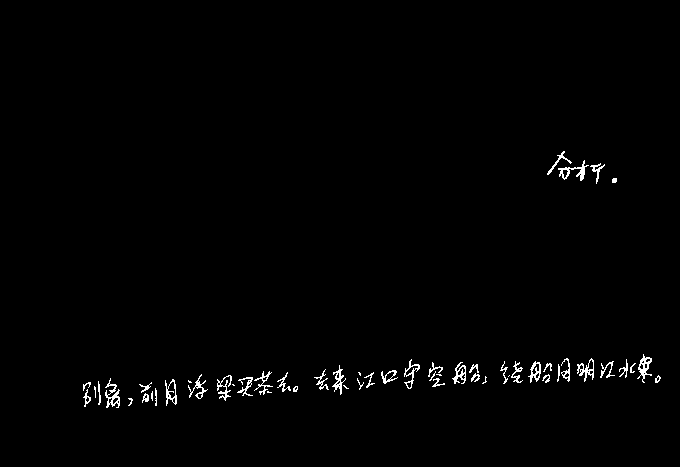 分析.
别离,前月浮梁买茶去。去来江口守空船,绕船月明江水寒。